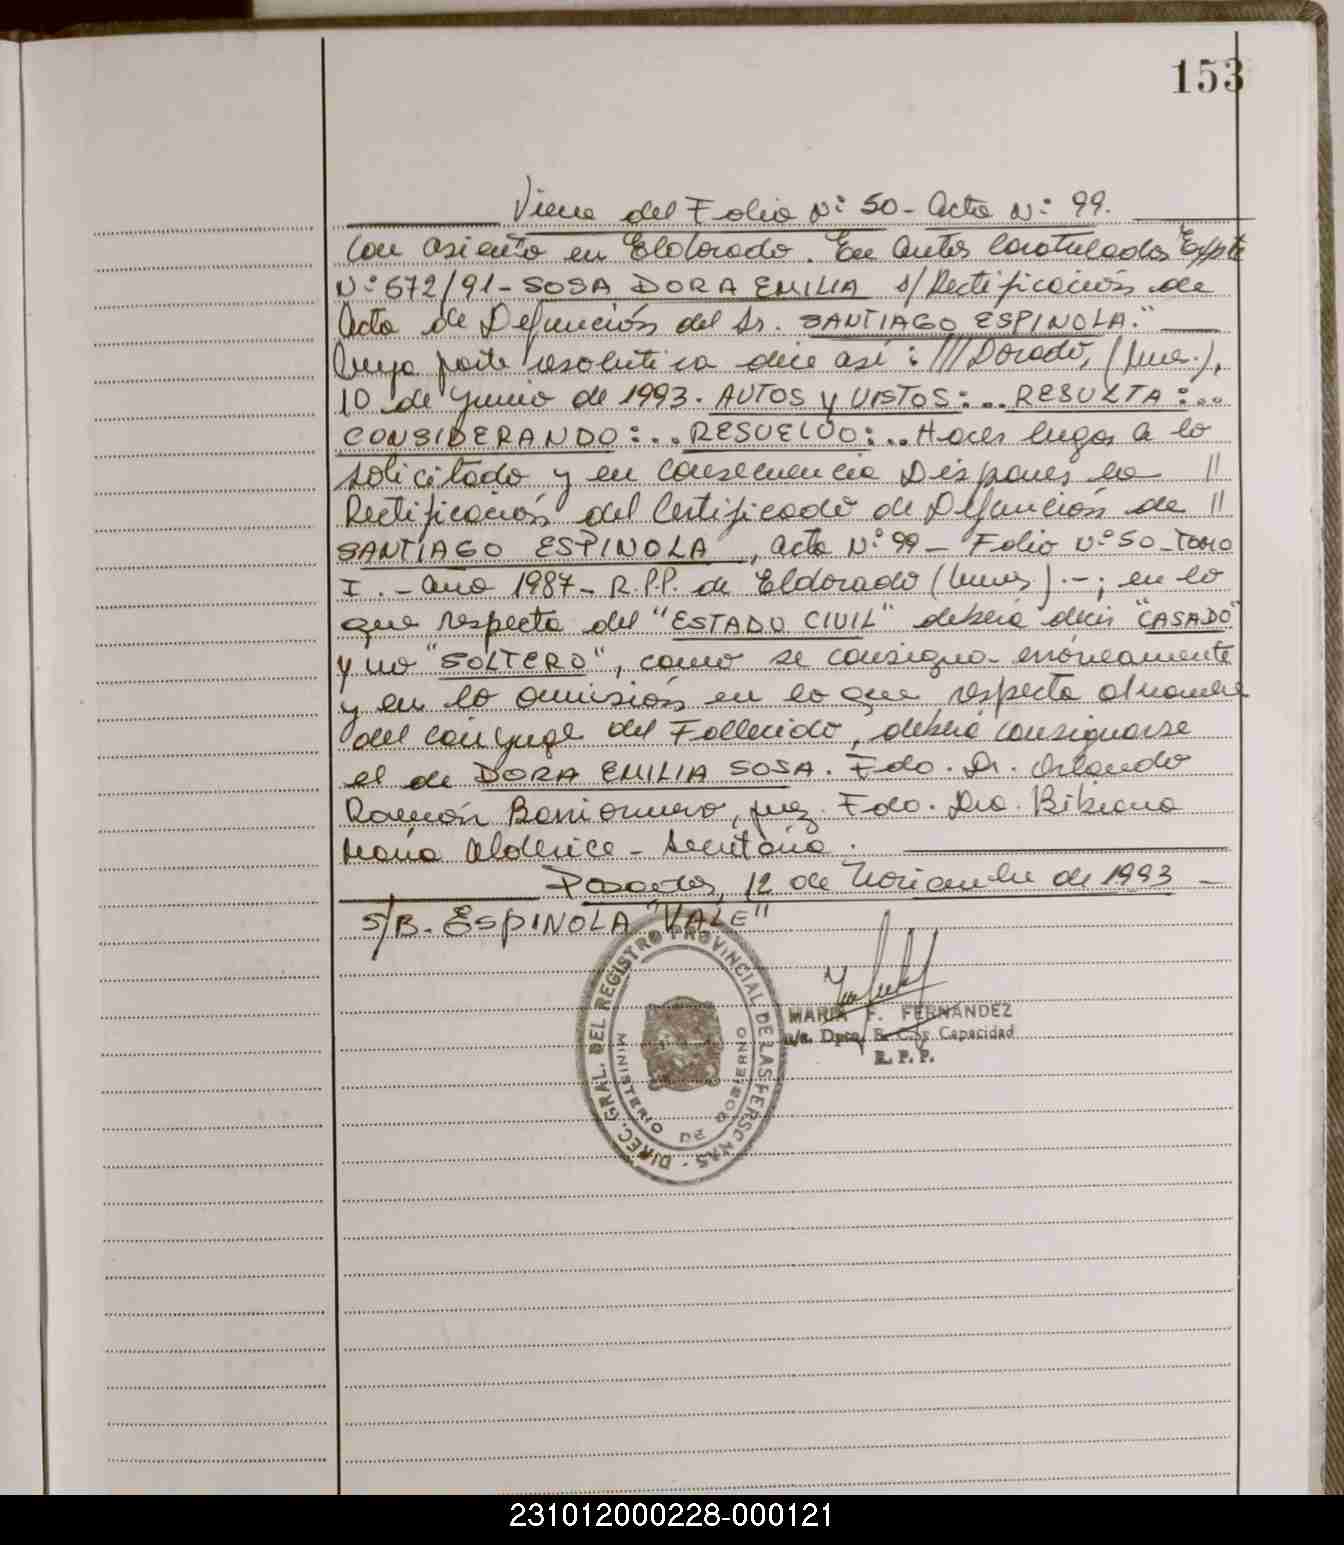 153
Viene del Folio Nº 50 - Acta Nº 99.
con asiento en Eldorado. En autos Caratulados "Expte
Nº 672/91 - SOSA DORA EMILIA s/ Rectificación de
Acta de Defunción del Sr. SANTIAGO ESPINOLA."
Cuya parte resolutiva dice así: ///Dorado, (Mnes.),
10 de Junio de 1993. AUTOS y VISTOS:.. RESULTA:..
CONSIDERANDO:.. RESUELVO:.. Hacer lugar a lo
solicitado y en consecuencia Disponer la //
Rectificación del Certificado de Defunción de //
SANTIAGO ESPINOLA, acta Nº 99 - Folio Nº 50 - Tomo
I. - año 1987 - R.P.P. de Eldorado (Mnes.) .-; en lo
que respecta del "ESTADO CIVIL" deberá decir "CASADO"
y no "SOLTERO", como se consigno erróneamente
y en la omisión en lo que respecta al nombre
del cónyuge del Fallecido, deberá consignarse
el de DORA EMILIA SOSA. Fdo. Dr. Orlando
Ramón, Juez. Fdo. Dra. Bibiana
María Alderice - Secretaria.
Posadas, 12 de Noviembre de 1993 -
S/B. ESPINOLA "VALE"
DIREC. GRAL. DEL REGISTRO PROVINCIAL DE LAS PERSONAS -
MINISTERIO DE GOBIERNO
MARIA F. FERNANDEZ
a/c. Dpto. E. C. y Capacidad
R. P. P.
231012000228-000121